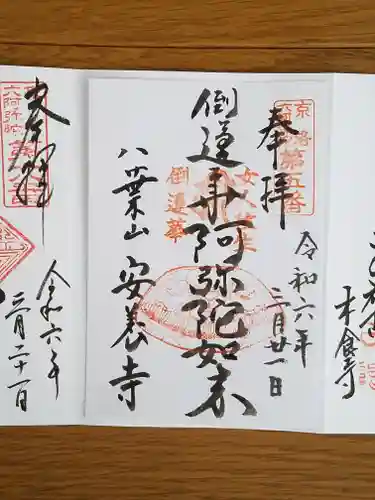 奉拝
京洛
六阿弥陀
第五番
令和六年
三月廿一日
倒蓮華阿弥陀如来
女人往生
倒蓮華
八葉山 安養寺
木食寺
六阿弥陀
令和六年
三月二十一日